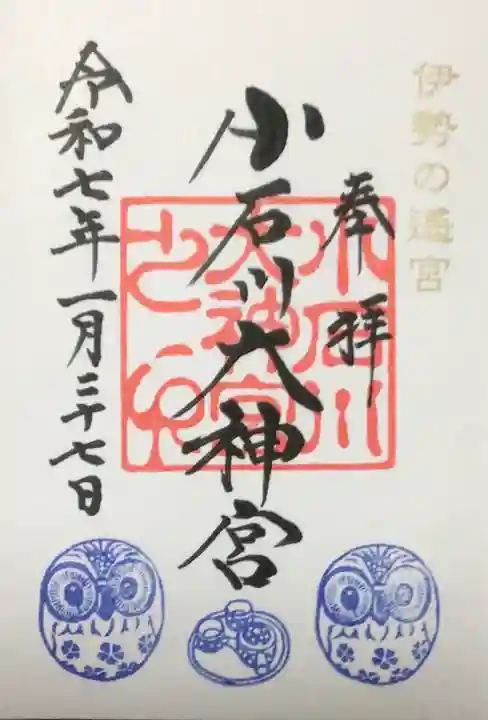 伊勢の遥宮
奉拝
小石川大神宮
小石川
大神宮
之印
令和七年一月二十七日